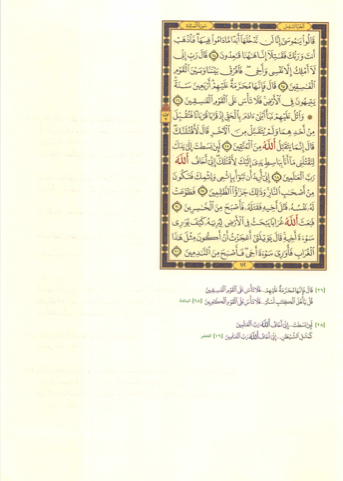 الجزء السادس سورة المائدة
قَالُوا۟ يَـٰمُوسَىٰٓ إِنَّا لَن نَّدْخُلَهَآ أَبَدًا مَّا دَامُوا۟ فِيهَا فَٱذْهَبْ
أَنتَ وَرَبُّكَ فَقَـٰتِلَآ إِنَّا هَـٰهُنَا قَـٰعِدُونَ ٢٤ قَالَ رَبِّ إِنِّى
لَآ أَمْلِكُ إِلَّا نَفْسِى وَأَخِى فَٱفْرُقْ بَيْنَنَا وَبَيْنَ ٱلْقَوْمِ
ٱلْفَـٰسِقِينَ ٢٥ قَالَ فَإِنَّهَا مُحَرَّمَةٌ عَلَيْهِمْ أَرْبَعِينَ سَنَةً
يَتِيهُونَ فِى ٱلْأَرْضِ فَلَا تَأْسَ عَلَى ٱلْقَوْمِ ٱلْفَـٰسِقِينَ ٢٦
۞ وَٱتْلُ عَلَيْهِمْ نَبَأَ ٱبْنَىْ ءَادَمَ بِٱلْحَقِّ إِذْ قَرَّبَا قُرْبَانًا فَتُقُبِّلَ
مِنْ أَحَدِهِمَا وَلَمْ يُتَقَبَّلْ مِنَ ٱلْـَٔاخَرِ قَالَ لَأَقْتُلَنَّكَ
قَالَ إِنَّمَا يَتَقَبَّلُ ٱللَّهُ مِنَ ٱلْمُتَّقِينَ ٢٧ لَئِنۢ بَسَطتَ إِلَىَّ يَدَكَ
لِتَقْتُلَنِى مَآ أَنَا۠ بِبَاسِطٍ يَدِىَ إِلَيْكَ لِأَقْتُلَكَ إِنِّىٓ أَخَافُ ٱللَّهَ
رَبَّ ٱلْعَـٰلَمِينَ ٢٨ إِنِّىٓ أُرِيدُ أَن تَبُوٓأَ بِإِثْمِى وَإِثْمِكَ فَتَكُونَ
مِنْ أَصْحَـٰبِ ٱلنَّارِ وَذَٰلِكَ جَزَٰٓؤُا۟ ٱلظَّـٰلِمِينَ ٢٩ فَطَوَّعَتْ
لَهُۥ نَفْسُهُۥ قَتْلَ أَخِيهِ فَقَتَلَهُۥ فَأَصْبَحَ مِنَ ٱلْخَـٰسِرِينَ ٣٠
فَبَعَثَ ٱللَّهُ غُرَابًا يَبْحَثُ فِى ٱلْأَرْضِ لِيُرِيَهُۥ كَيْفَ يُوَٰرِى
سَوْءَةَ أَخِيهِ قَالَ يَـٰوَيْلَتَىٰٓ أَعَجَزْتُ أَنْ أَكُونَ مِثْلَ هَـٰذَا
ٱلْغُرَابِ فَأُوَٰرِىَ سَوْءَةَ أَخِى فَأَصْبَحَ مِنَ ٱلنَّـٰدِمِينَ ٣١
١١٢
[٢٦] قَالَ فَإِنَّهَا مُحَرَّمَةٌ عَلَيْهِمْ.. فَلَا تَأْسَ عَلَى ٱلْقَوْمِ ٱلْفَـٰسِقِينَ
قُلْ يَـٰٓأَهْلَ ٱلْكِتَـٰبِ لَسْتُمْ.. فَلَا تَأْسَ عَلَى ٱلْقَوْمِ ٱلْكَـٰفِرِينَ [٦٨] المائدة
[٢٨] لَئِنۢ بَسَطتَ.. إِنِّىٓ أَخَافُ ٱللَّهَ رَبَّ ٱلْعَـٰلَمِينَ
كَمَثَلِ ٱلشَّيْطَـٰنِ.. إِنِّىٓ أَخَافُ ٱللَّهَ رَبَّ ٱلْعَـٰلَمِينَ [١٦] الحشر